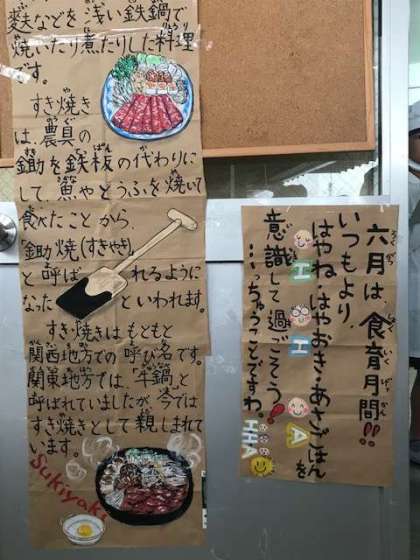 麩などを浅い鉄鍋で
焼いたり煮たりした料理
です。
すき焼き
は、農具の
鋤を鉄板の代わりに
して、魚やとうふを焼いて
食べたことから、
「鋤焼(すきやき)」
と呼ばれるように
なったといわれます。
すき焼きはもともと
関西地方での呼び名です。
関東地方では、「牛鍋」と
呼ばれていましたが、今では
すき焼きとして親しまれて
います。
Sukiyaki
六月は、食育月間!!
いつもより
はやね はやおき・あさごはんを
H H A
意識して過ごそう!
…っちゅうことですわ。
HHA